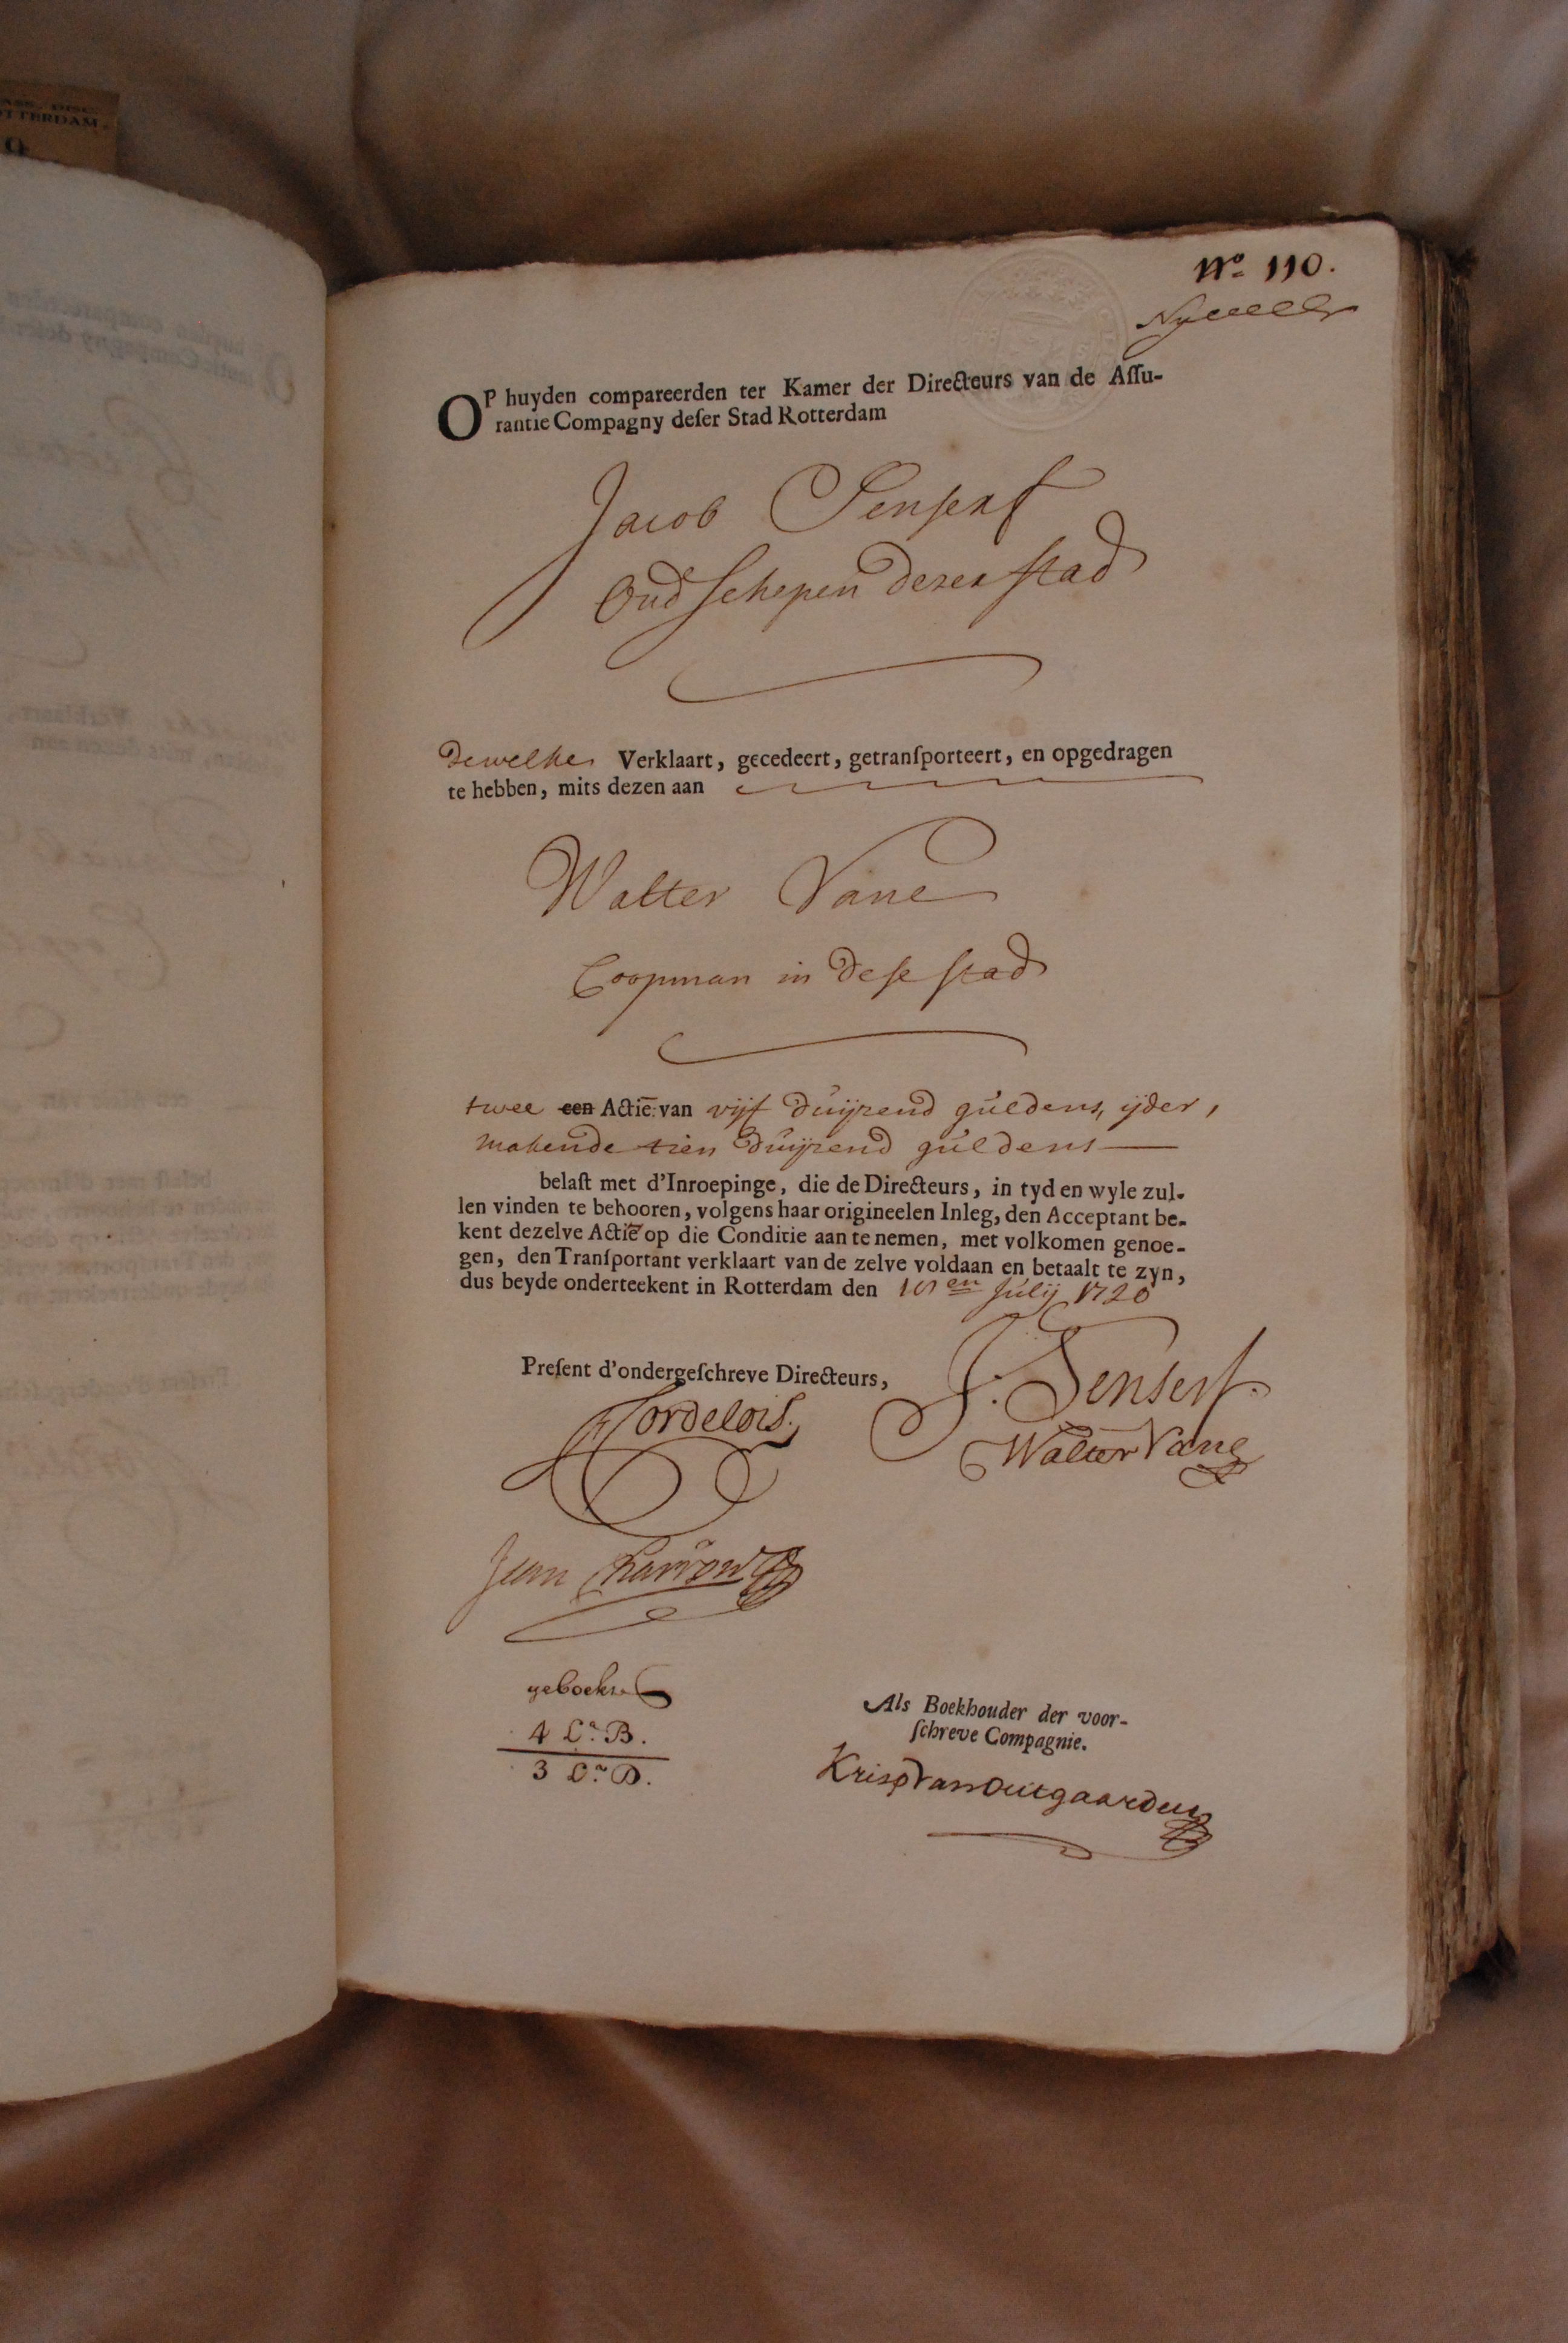 ASS. DISC.
OTTERDAM.
Nº 110.
OP huyden compareerden ter Kamer der Directeurs van de Assu-
rantie Compagny deser Stad Rotterdam
Jacob Senserf
Oud Schepen dezer stad
dewelke Verklaart, gecedeert, getransporteert, en opgedragen
te hebben, mits dezen aan
Walter Vane
Coopman in dese stad
twee een Actie: van vijf duijzend guldens, ijder,
makende tien duijzend guldens
belast met d'Inroepinge, die de Directeurs, in tyd en wyle zul-
len vinden te behooren, volgens haar origineelen Inleg, den Acceptant be-
kent dezelve Actie op die Conditie aan te nemen, met volkomen genoe-
gen, den Transportant verklaart van de zelve voldaan en betaalt te zyn,
dus beyde onderteekent in Rotterdam den Julij 1720
Present d'ondergeschreve Directeurs,
J. Senserf.
Walter Vane
Jean
geboekt
4 La. B.
3 La. D.
Als Boekhouder der voor-
schreve Compagnie.
Krisp Van Outgaarden